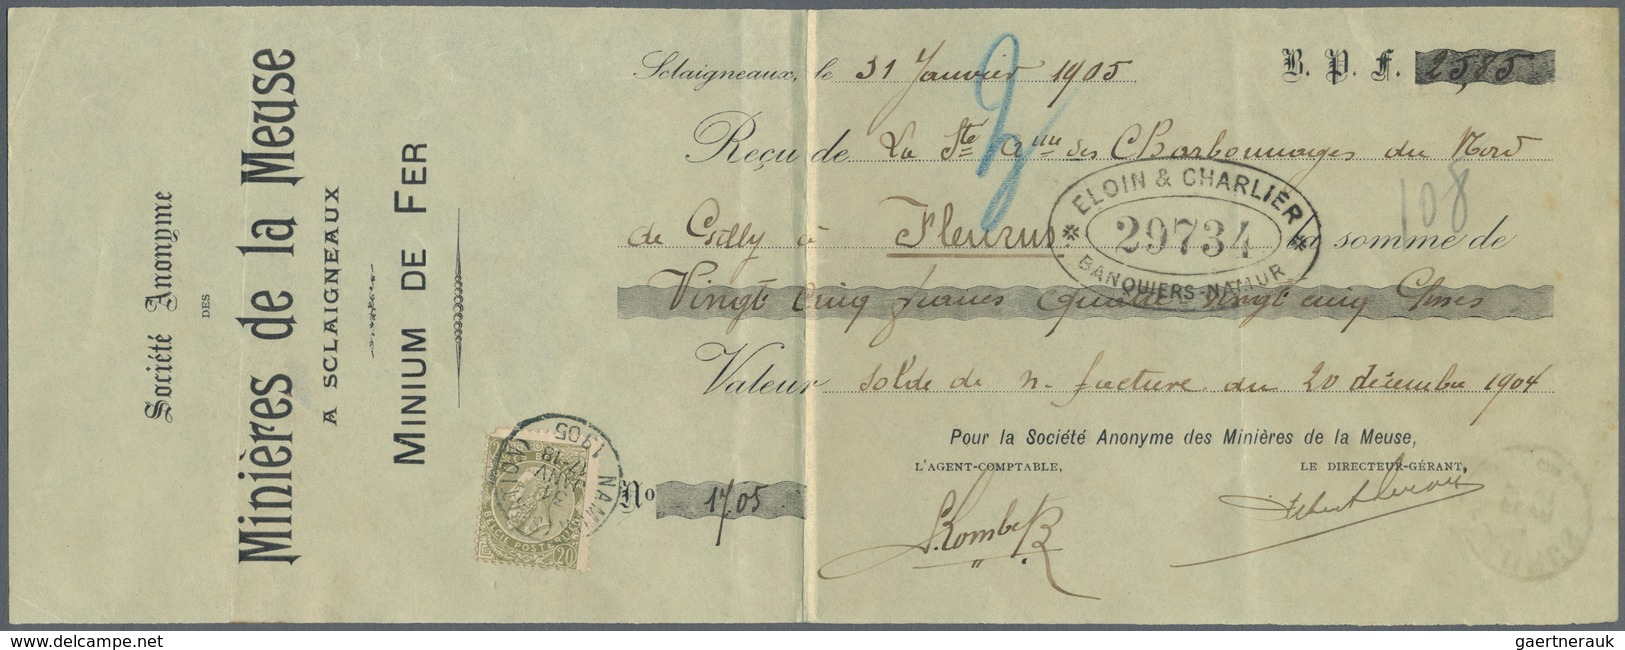 Société Anonyme
DES
Minières de la Meuse
A SCLAIGNEAUX
MINIUM DE FER
Sclaigneaux, le 31 Janvier 1905
B. P. F. 25,85
Reçu de La Sté Ame des Charbonnages du Nord
108
de Gilly à Fleurus la somme de
ELOIN & CHARLIER
29734
BANQUIERS-NAMUR
Vingt cinq francs quatre vingt cinq Cmes
Valeur solde de n- facture du 20 décembre 1904
Pour la Société Anonyme des Minières de la Meuse,
L'AGENT-COMPTABLE,
LE DIRECTEUR-GÉRANT,
No 1705
NAMUR
31 JANV
17-18
1905
BELGIE POSTERIJEN
20
delcampe.net
gaertnerauk